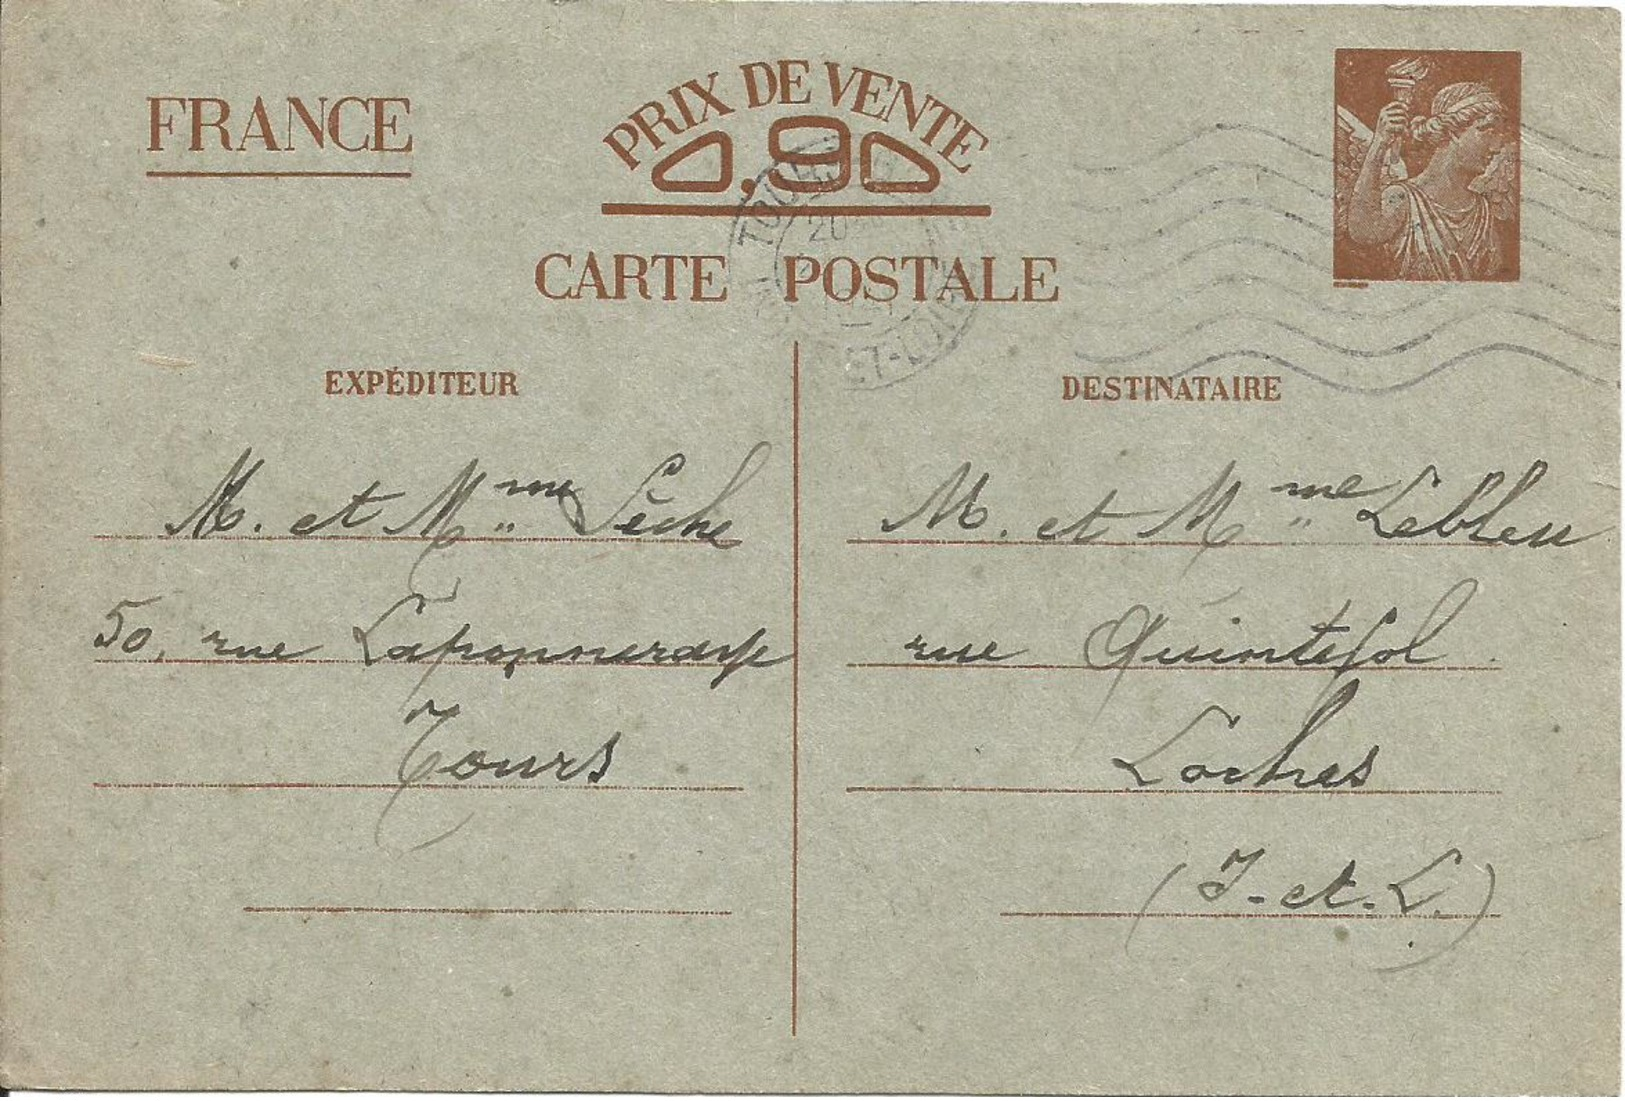 FRANCE
PRIX DE VENTE
0,90
CARTE POSTALE
TOURS
20
ET-LOIRE
EXPÉDITEUR
M. et Mme Sèche
50, rue Laponneraye
Tours
DESTINATAIRE
M. et Mme Lebleu
rue Quintefol
Loches
(I-et-L.)